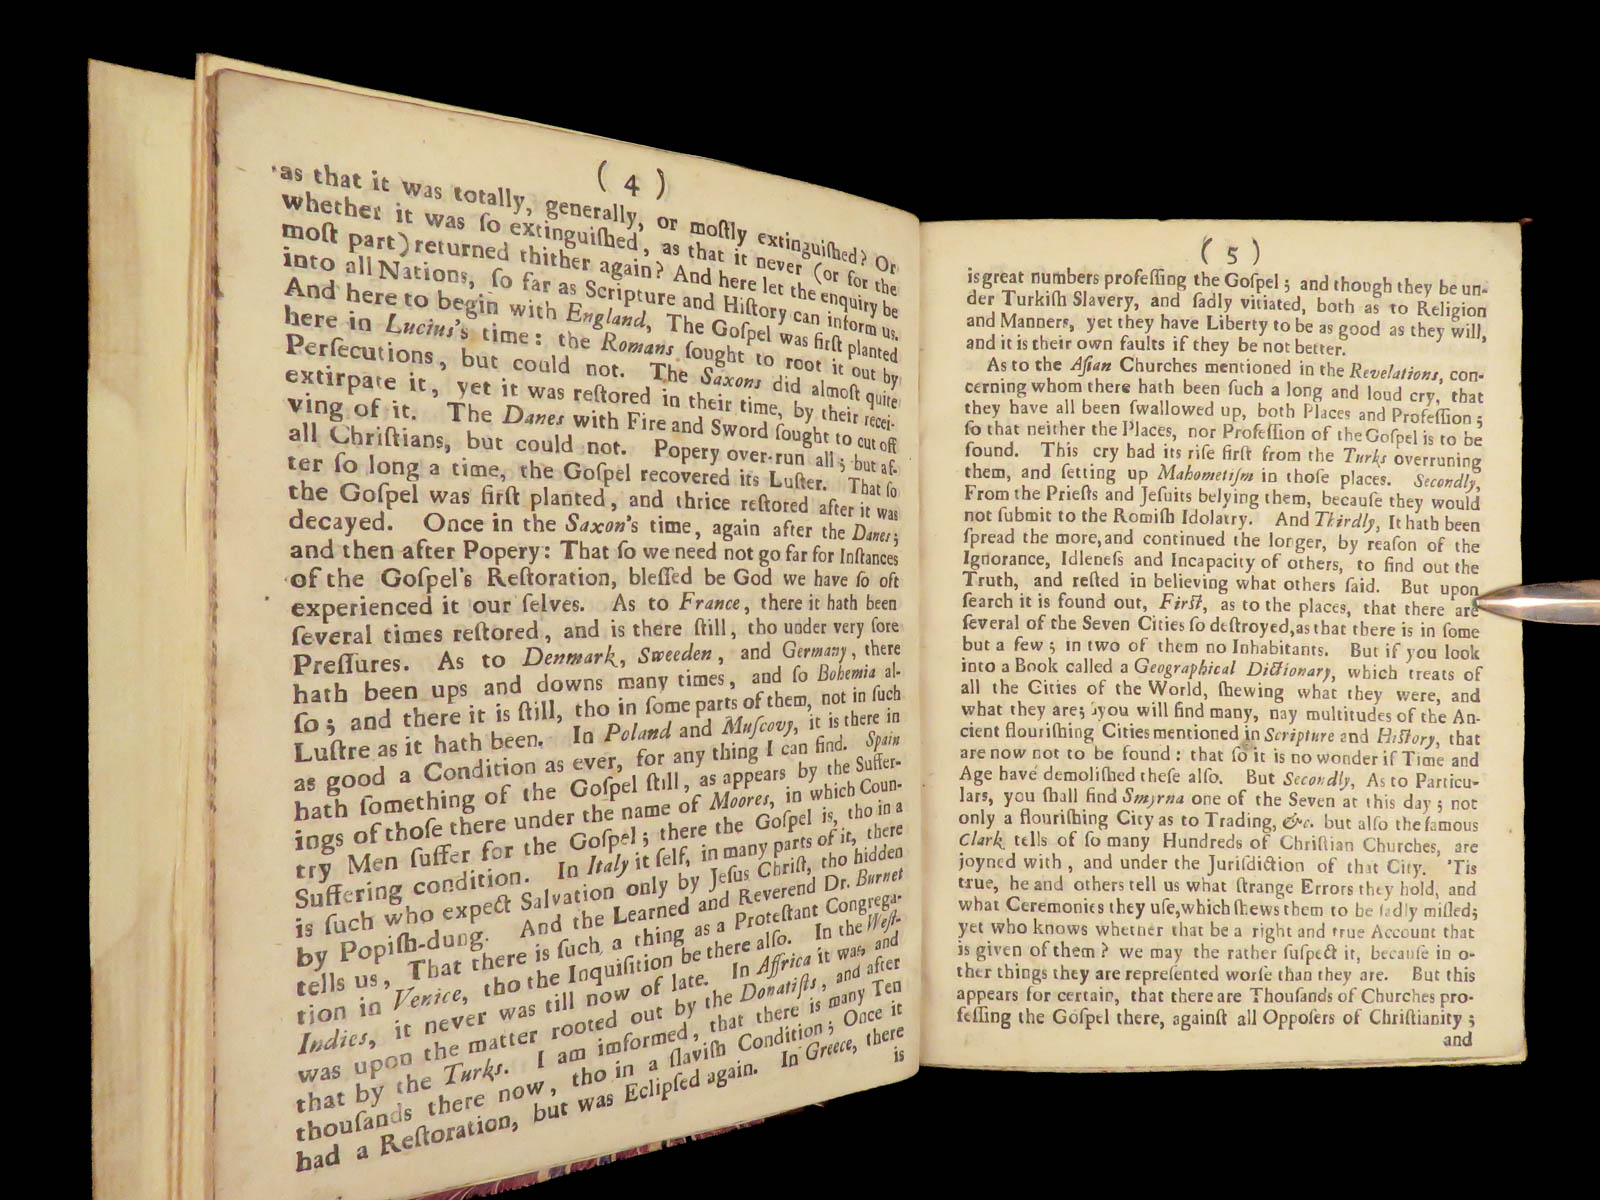 ( 4 )
as that it was totally, generally, or moſtly extinguiſhed? Or
whether it was ſo extinguiſhed, as that it never (or for the
moſt part) returned thither again? And here let the enquiry be
into all Nations, ſo far as Scripture and Hiſtory can inform us.
And here to begin with England, The Goſpel was firſt planted
here in Lucius's time: the Romans ſought to root it out by
Perſecutions, but could not. The Saxons did almoſt quite
extirpate it, yet it was reſtored in their time, by their recei-
ving of it. The Danes with Fire and Sword ſought to cut off
all Chriſtians, but could not. Popery over-run all; but af-
ter ſo long a time, the Goſpel recovered its Luſter. That ſo
the Goſpel was firſt planted, and thrice reſtored after it was
decayed. Once in the Saxon's time, again after the Danes;
and then after Popery: That ſo we need not go far for Inſtances
of the Goſpel's Reſtoration, bleſſed be God we have ſo oft
experienced it our ſelves. As to France, there it hath been
ſeveral times reſtored, and is there ſtill, tho under very ſore
Preſſures. As to Denmark, Sweeden, and Germany, there
hath been ups and downs many times, and ſo Bohemia al-
ſo; and there it is ſtill, tho in ſome parts of them, not in ſuch
Luſtre as it hath been. In Poland and Muſcovy, it is there in
as good a Condition as ever, for any thing I can find. Spain
hath ſomething of the Goſpel ſtill, as appears by the Suffer-
ings of thoſe there under the name of Moores, in which Coun-
try Men ſuffer for the Goſpel; there the Goſpel is, tho in a
Suffering condition. In Italy it ſelf, in many parts of it, there
is ſuch who expect Salvation only by Jeſus Chriſt, tho hidden
by Popiſh-dung. And the Learned and Reverend Dr. Burnet
tells us, That there is ſuch a thing as a Proteſtant Congrega-
tion in Venice, tho the Inquiſition be there alſo. In the Weſt-
Indies, it never was till now of late. In Affrica it was, and
was upon the matter rooted out by the Donatiſts, and after
that by the Turks. I am imformed, that there is many Ten
thouſands there now, tho in a ſlaviſh Condition; Once it
had a Reſtoration, but was Eclipſed again. In Greece, there
is
( 5 )
is great numbers profeſſing the Goſpel; and though they be un-
der Turkiſh Slavery, and ſadly vitiated, both as to Religion
and Manners, yet they have Liberty to be as good as they will,
and it is their own faults if they be not better.
As to the Aſian Churches mentioned in the Revelations, con-
cerning whom there hath been ſuch a long and loud cry, that
they have all been ſwallowed up, both Places and Profeſſion;
ſo that neither the Places, nor Profeſſion of the Goſpel is to be
found. This cry had its riſe firſt from the Turks overruning
them, and ſetting up Mahometiſm in thoſe places. Secondly,
From the Prieſts and Jeſuits belying them, becauſe they would
not ſubmit to the Romiſh Idolatry. And Thirdly, It hath been
ſpread the more, and continued the longer, by reaſon of the
Ignorance, Idleneſs and Incapacity of others, to find out the
Truth, and reſted in believing what others ſaid. But upon
ſearch it is found out, Firſt, as to the places, that there are
ſeveral of the Seven Cities ſo deſtroyed, as that there is in ſome
but a few; in two of them no Inhabitants. But if you look
into a Book called a Geographical Dictionary, which treats of
all the Cities of the World, ſhewing what they were, and
what they are; you will find many, nay multitudes of the An-
cient flouriſhing Cities mentioned in Scripture and Hiſtory, that
are now not to be found: that ſo it is no wonder if Time and
Age have demoliſhed theſe alſo. But Secondly, As to Particu-
lars, you ſhall find Smyrna one of the Seven at this day; not
only a flouriſhing City as to Trading, &c. but alſo the famous
Clark tells of ſo many Hundreds of Chriſtian Churches, are
joyned with, and under the Juriſdiction of that City. 'Tis
true, he and others tell us what ſtrange Errors they hold, and
what Ceremonies they uſe, which ſhews them to be ſadly miſled;
yet who knows whether that be a right and true Account that
is given of them? we may the rather ſuſpect it, becauſe in o-
ther things they are repreſented worſe than they are. But this
appears for certain, that there are Thouſands of Churches pro-
feſſing the Goſpel there, againſt all Oppoſers of Chriſtianity;
and